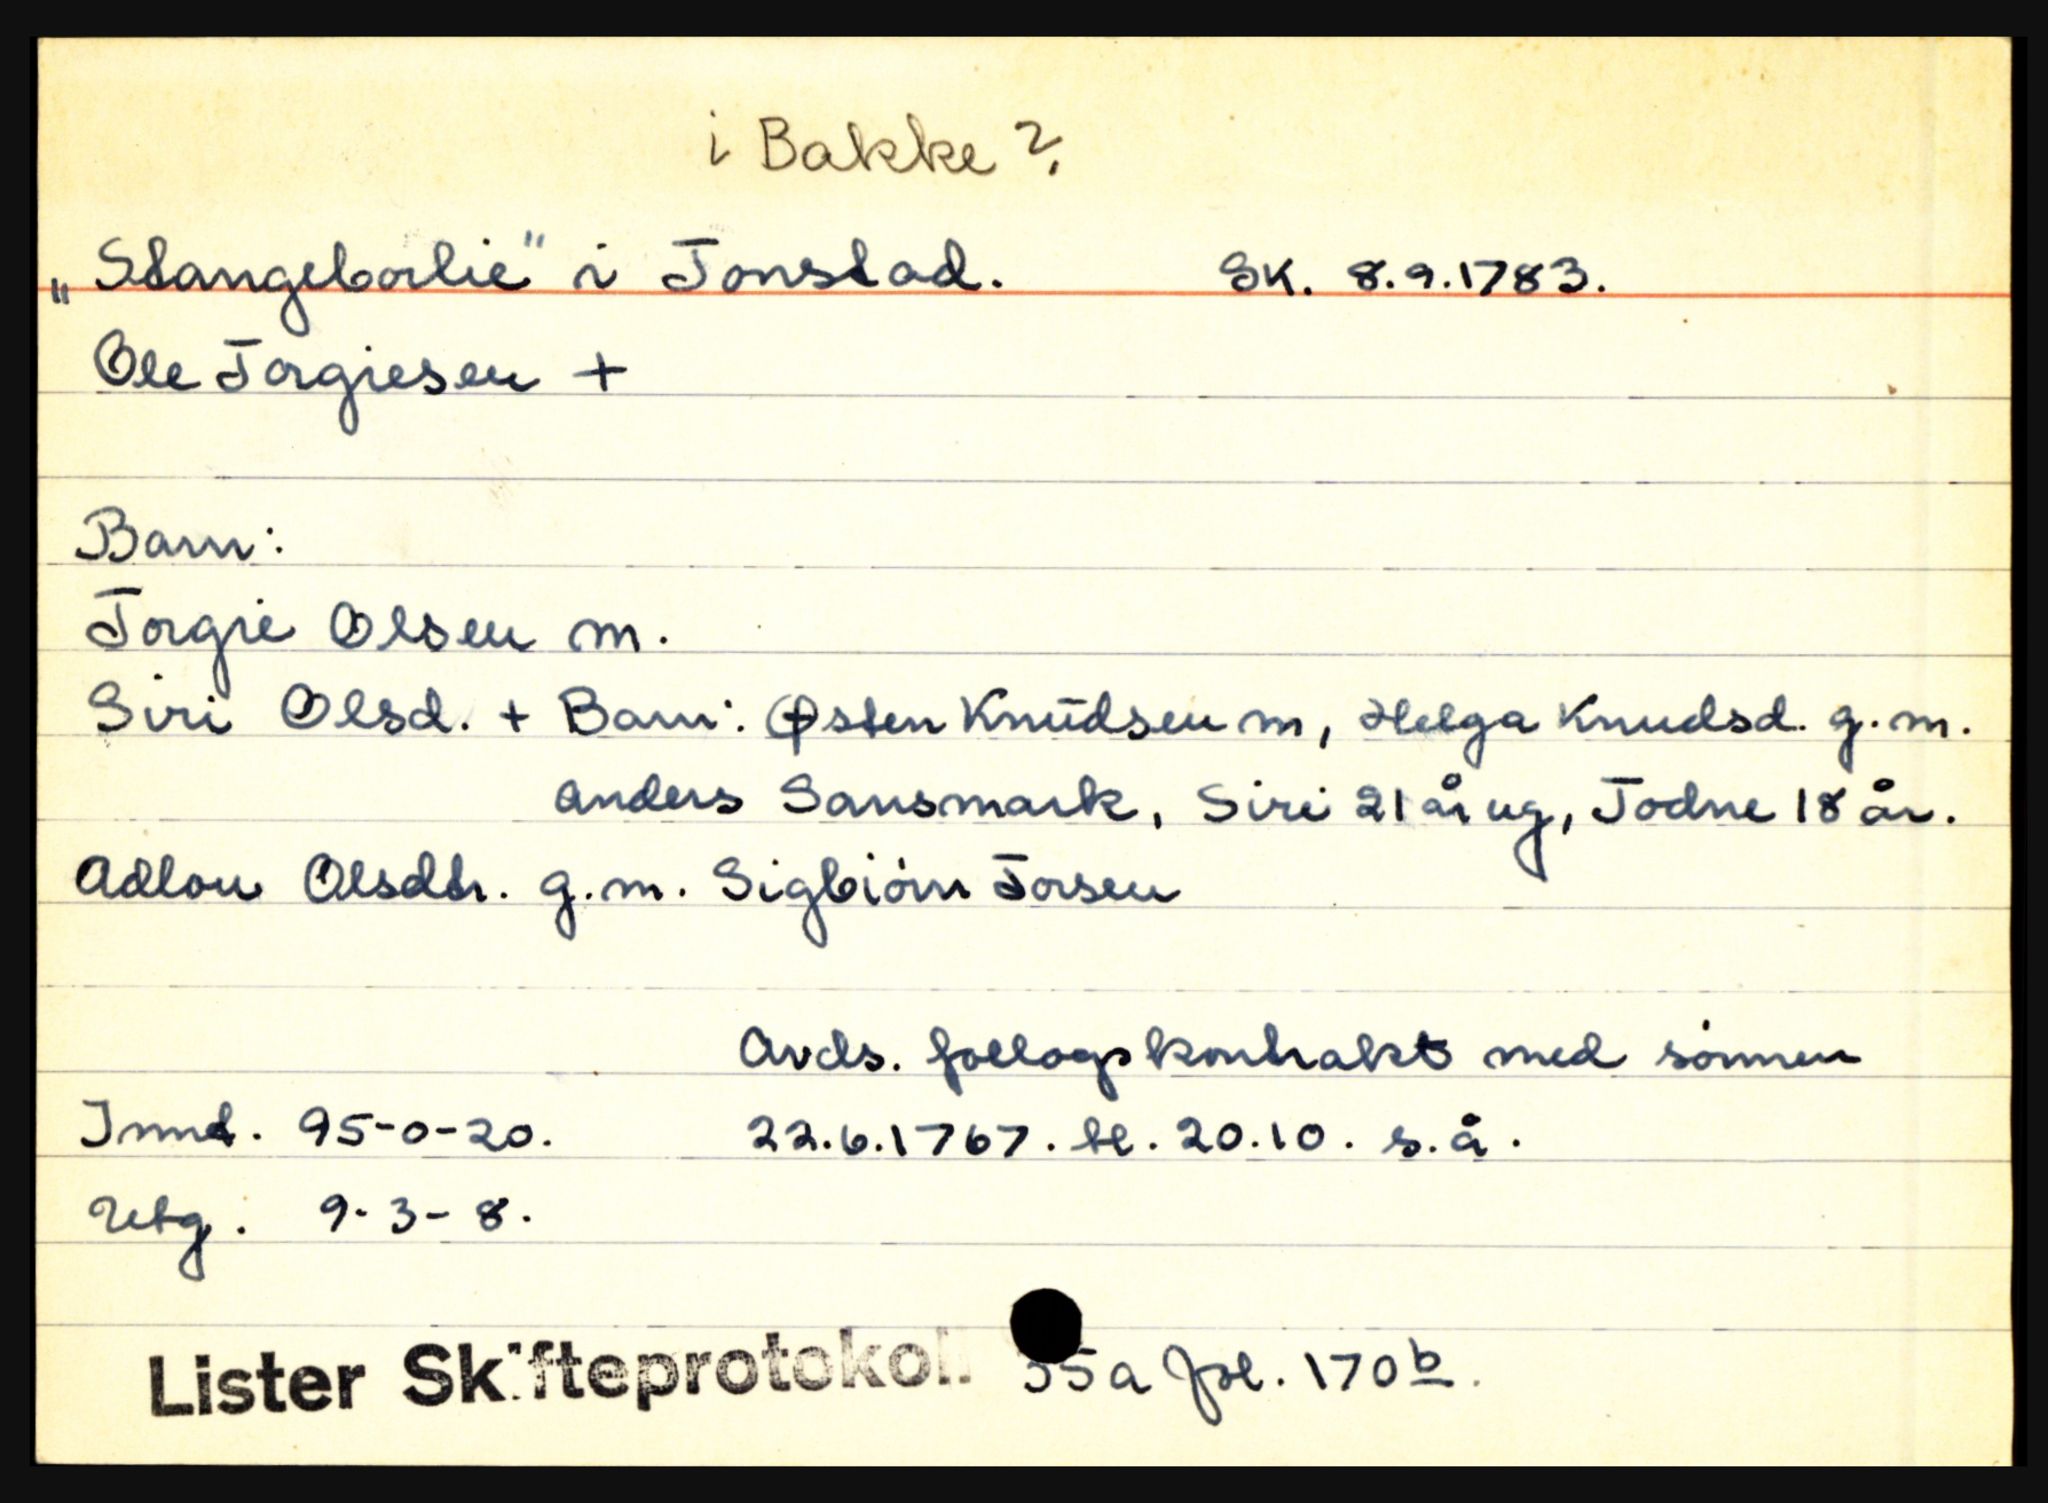 i Bakke ?
„Stangeborlie" i Tonstad. Sk. 8.9.1783.
Ole Torgiesen +
Barn:
Torgie Olsen m.
Siri Olsd. + Barn: Østen Knudsen m, Helga Knudsd. g.m.
Anders Sansmark, Siri 21 år ug, Todne 18 år.
Adlou Olsdtr. g.m. Sigbiörn Torsen
Avds. follogskontrakt med sönnen
Innd. 95-0-20. 22.6.1767. tl. 20.10. s.å.
Utg. 9-3-8.
Lister Skifteprotokoll 35a fol. 170b.